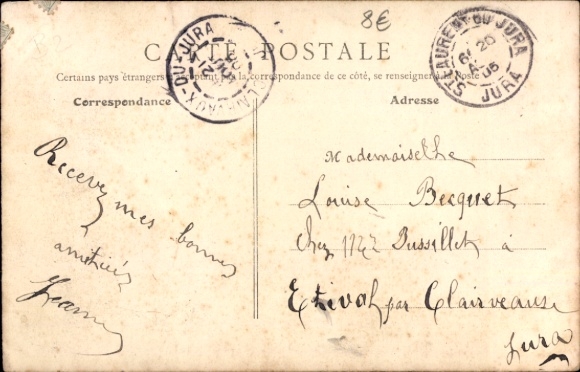 8€
CARTE POSTALE
Certains pays étrangers n'acceptant pas la correspondance de ce côté, se renseigner à la Poste
Correspondance
Adresse
CLAIRVAUX-DU-JURA
ST LAURENT-DU-JURA
20
05
JURA
Recevez mes bonnes
amitiés
Jeanne
Mademoiselle
Louise Becquet
Chez Pussillet à
Etival par Clairveause
Jura